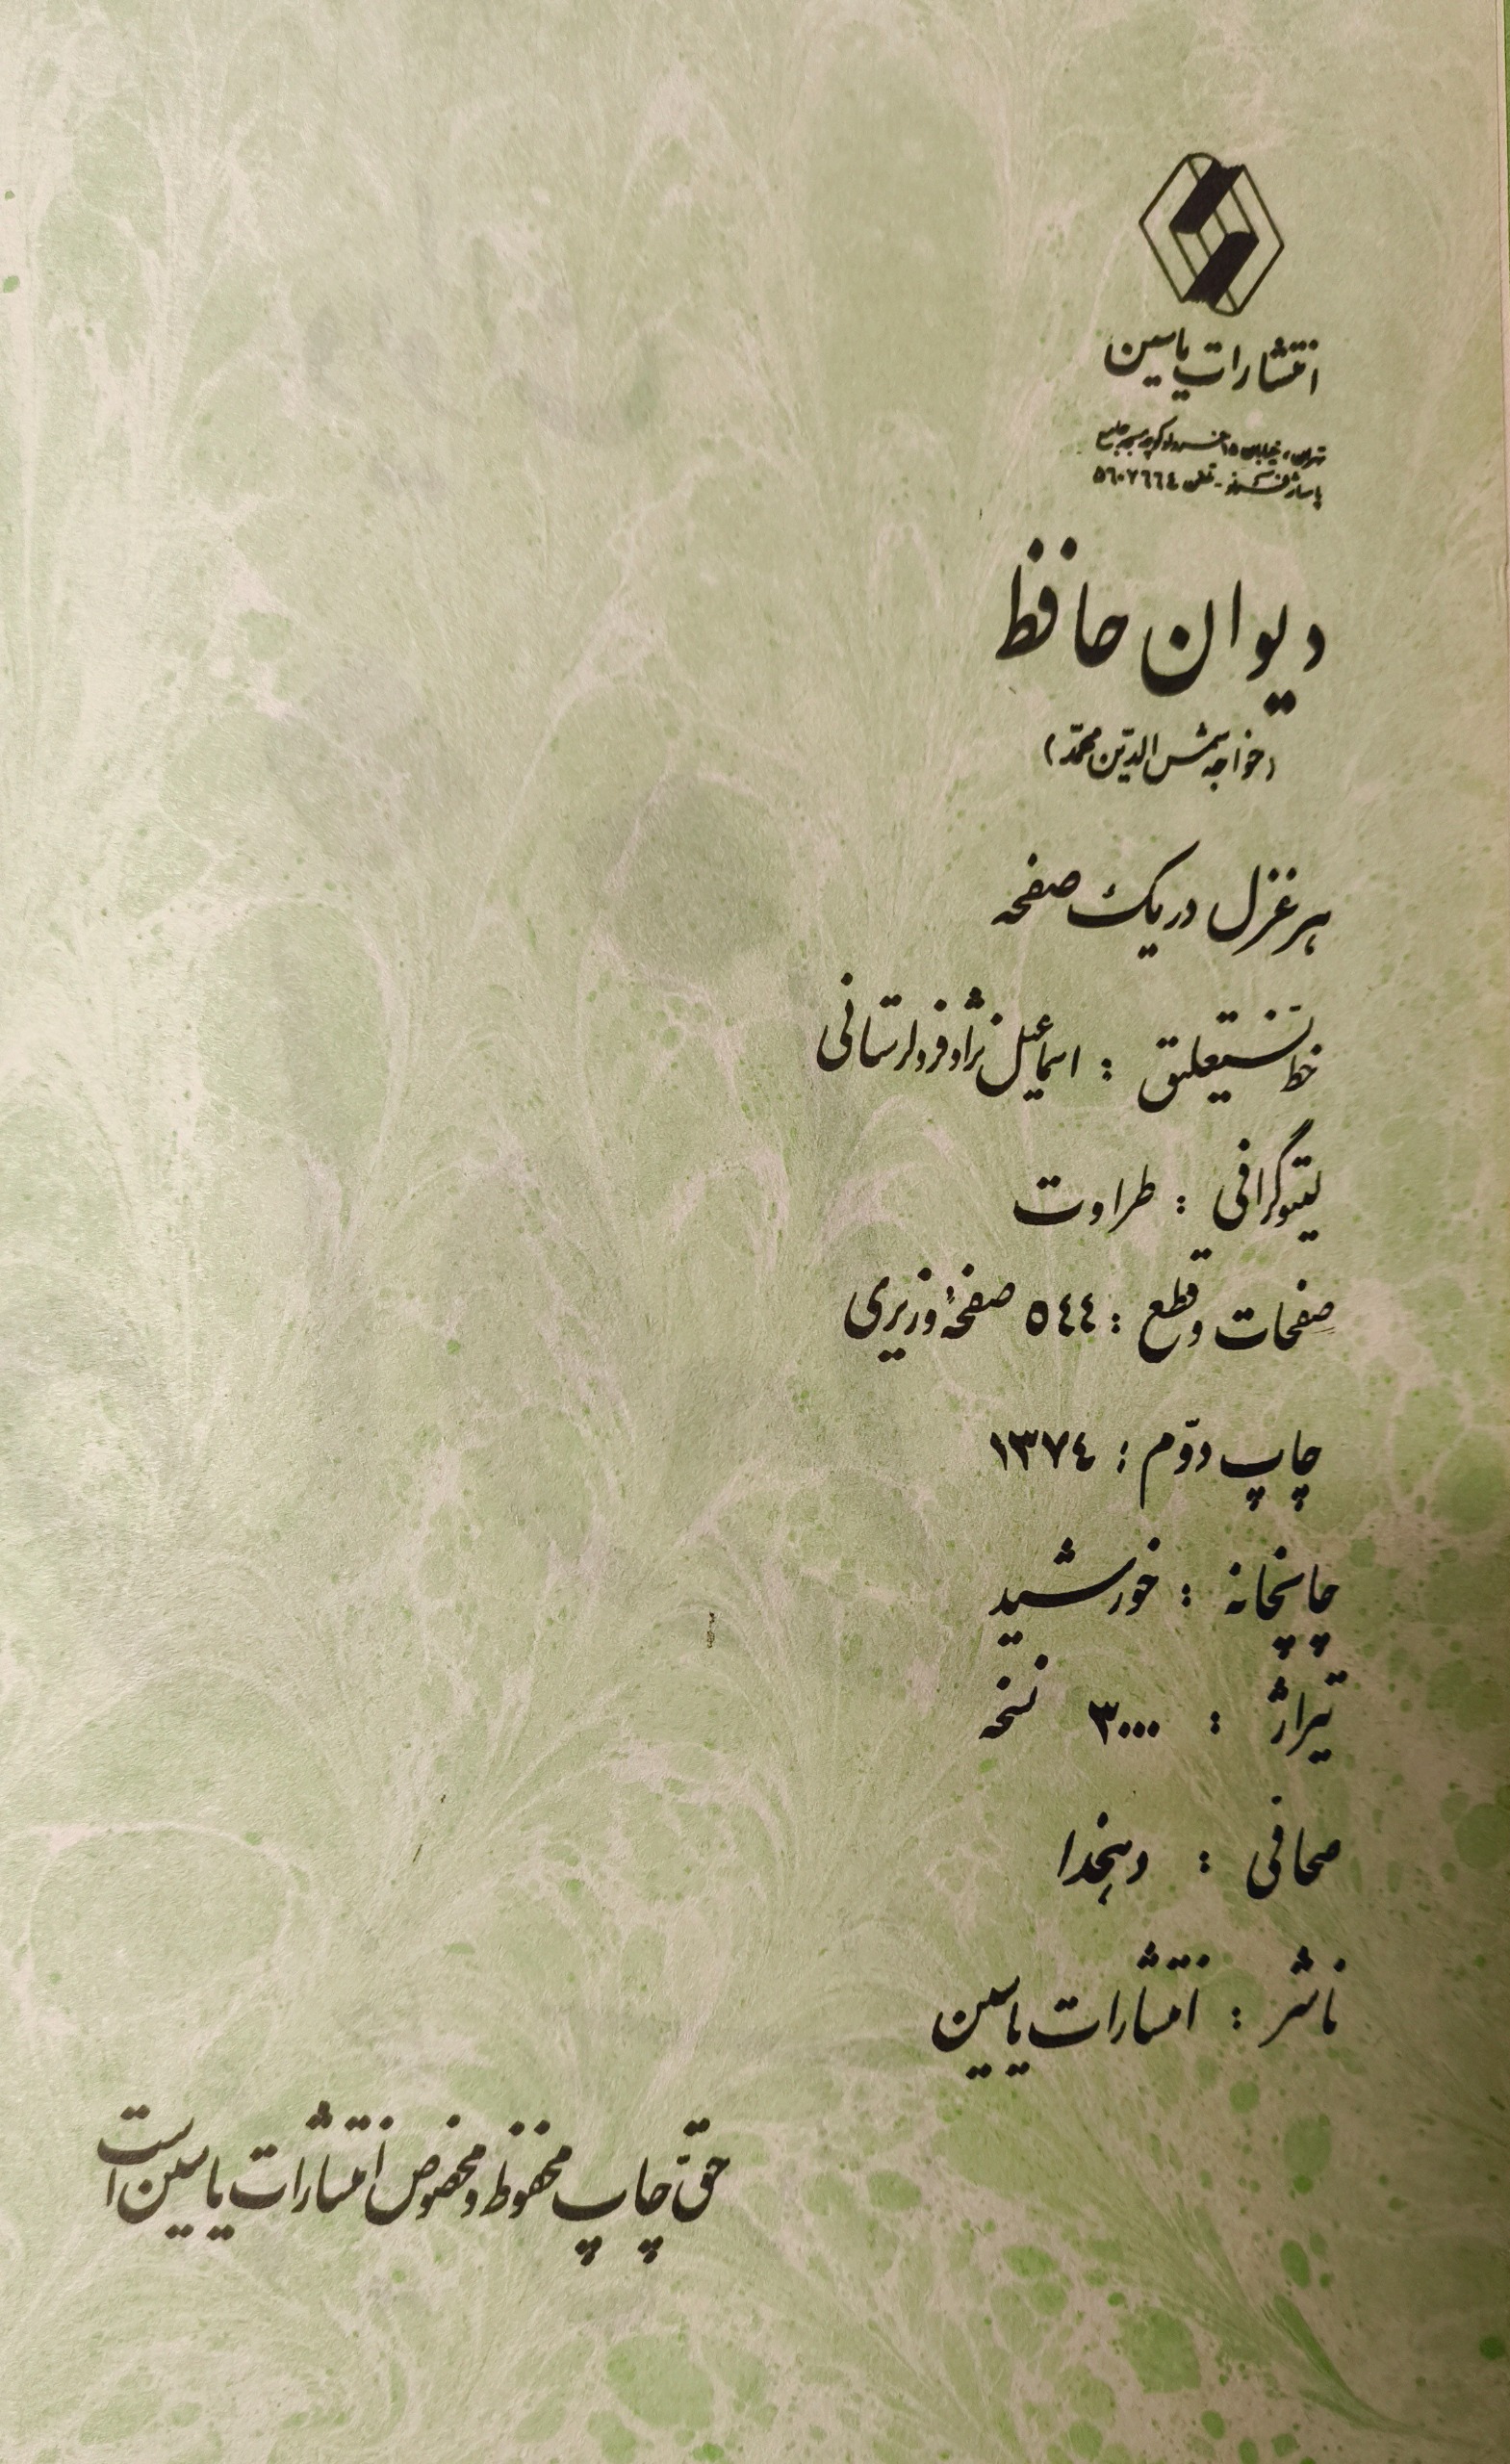 انتشارات یاسین
تهران، خیابان ۱۵ خرداد کوچه مسجد جامع
پاساژ - تلفن ۵۶۰۷۶۶۴
دیوان حافظ
(خواجه شمس الدّین محمّد)
هر غزل در یک صفحه
خط نستعلیق : اسماعیل نژاد فرد لرستانی
لیتوگرافی : طراوت
صفحات و قطع : ۵٤٤ صفحهٔ وزیری
چاپ دوّم : ۱۳۷٤
چاپخانه : خورشید
تیراژ : ۳۰۰۰ نسخه
صحافی : دهخدا
ناشر : انتشارات یاسین
حقّ چاپ محفوظ و مخصوص انتشارات یاسین است